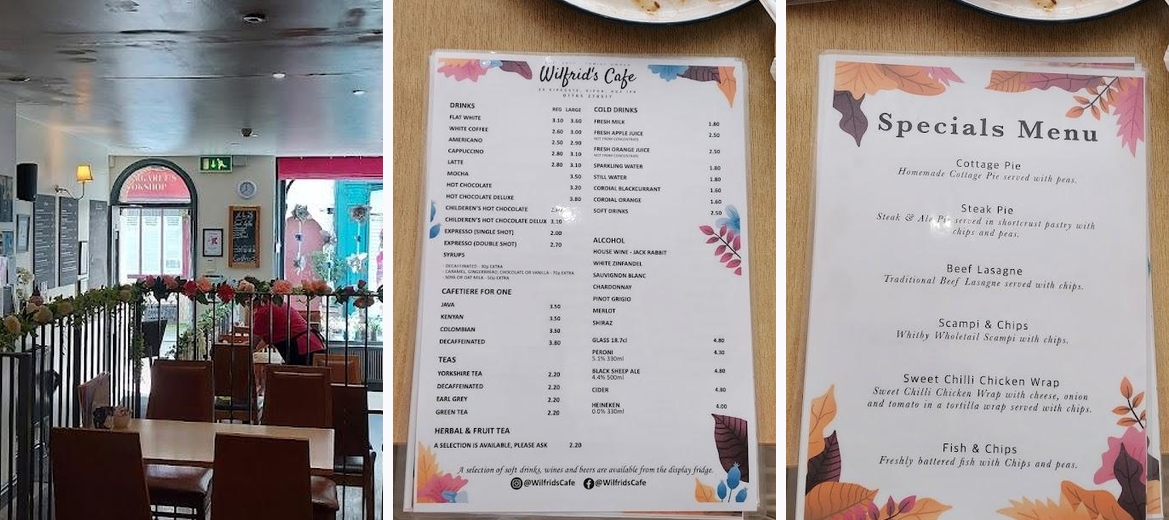 MARGARET'S
BOOKSHOP
Wilfrid's Cafe
DRINKS REG LARGE
FLAT WHITE 3.10 3.60
WHITE COFFEE 2.60 3.00
AMERICANO 2.50 2.90
CAPPUCCINO 2.80 3.10
LATTE 2.80 3.10
MOCHA 3.50
HOT CHOCOLATE 3.20
HOT CHOCOLATE DELUXE 3.80
CHILDEREN'S HOT CHOCOLATE
CHILDEREN'S HOT CHOCOLATE DELUX 3.10
EXPRESSO (SINGLE SHOT) 2.00
EXPRESSO (DOUBLE SHOT) 2.70
SYRUPS
- DECAFFEINATED - 30p EXTRA
- CARAMEL, GINGERBREAD, CHOCOLATE OR VANILLA - 70p EXTRA
- SOYA OR OAT MILK - 50p EXTRA
CAFETIERE FOR ONE
JAVA 3.50
KENYAN 3.50
COLOMBIAN 3.50
DECAFFEINATED 3.80
TEAS
YORKSHIRE TEA 2.20
DECAFFEINATED 2.20
EARL GREY 2.20
GREEN TEA 2.20
HERBAL & FRUIT TEA
A SELECTION IS AVAILABLE, PLEASE ASK 2.20
COLD DRINKS
FRESH MILK 1.80
FRESH APPLE JUICE 2.50
NOT FROM CONCENTRATE
FRESH ORANGE JUICE 2.50
NOT FROM CONCENTRATE
SPARKLING WATER 1.80
STILL WATER 1.80
CORDIAL BLACKCURRANT 1.60
CORDIAL ORANGE 1.60
SOFT DRINKS 2.50
ALCOHOL
HOUSE WINE - JACK RABBIT
WHITE ZINFANDEL
SAUVIGNON BLANC
CHARDONNAY
PINOT GRIGIO
MERLOT
SHIRAZ
GLASS 18.7cl 4.80
PERONI 4.30
5.1% 330ml
BLACK SHEEP ALE 4.80
4.4% 500ml
CIDER 4.80
HEINEKEN 4.00
0.0% 330ml
A selection of soft drinks, wines and beers are available from the display fridge.
@WilfridsCafe @WilfridsCafe
Specials Menu
Cottage Pie
Homemade Cottage Pie served with peas.
Steak Pie
Steak & Ale Pie served in shortcrust pastry with
chips and peas.
Beef Lasagne
Traditional Beef Lasagne served with chips.
Scampi & Chips
Whitby Wholetail Scampi with chips.
Sweet Chilli Chicken Wrap
Sweet Chilli Chicken Wrap with cheese, onion
and tomato in a tortilla wrap served with chips.
Fish & Chips
Freshly battered fish with Chips and peas.